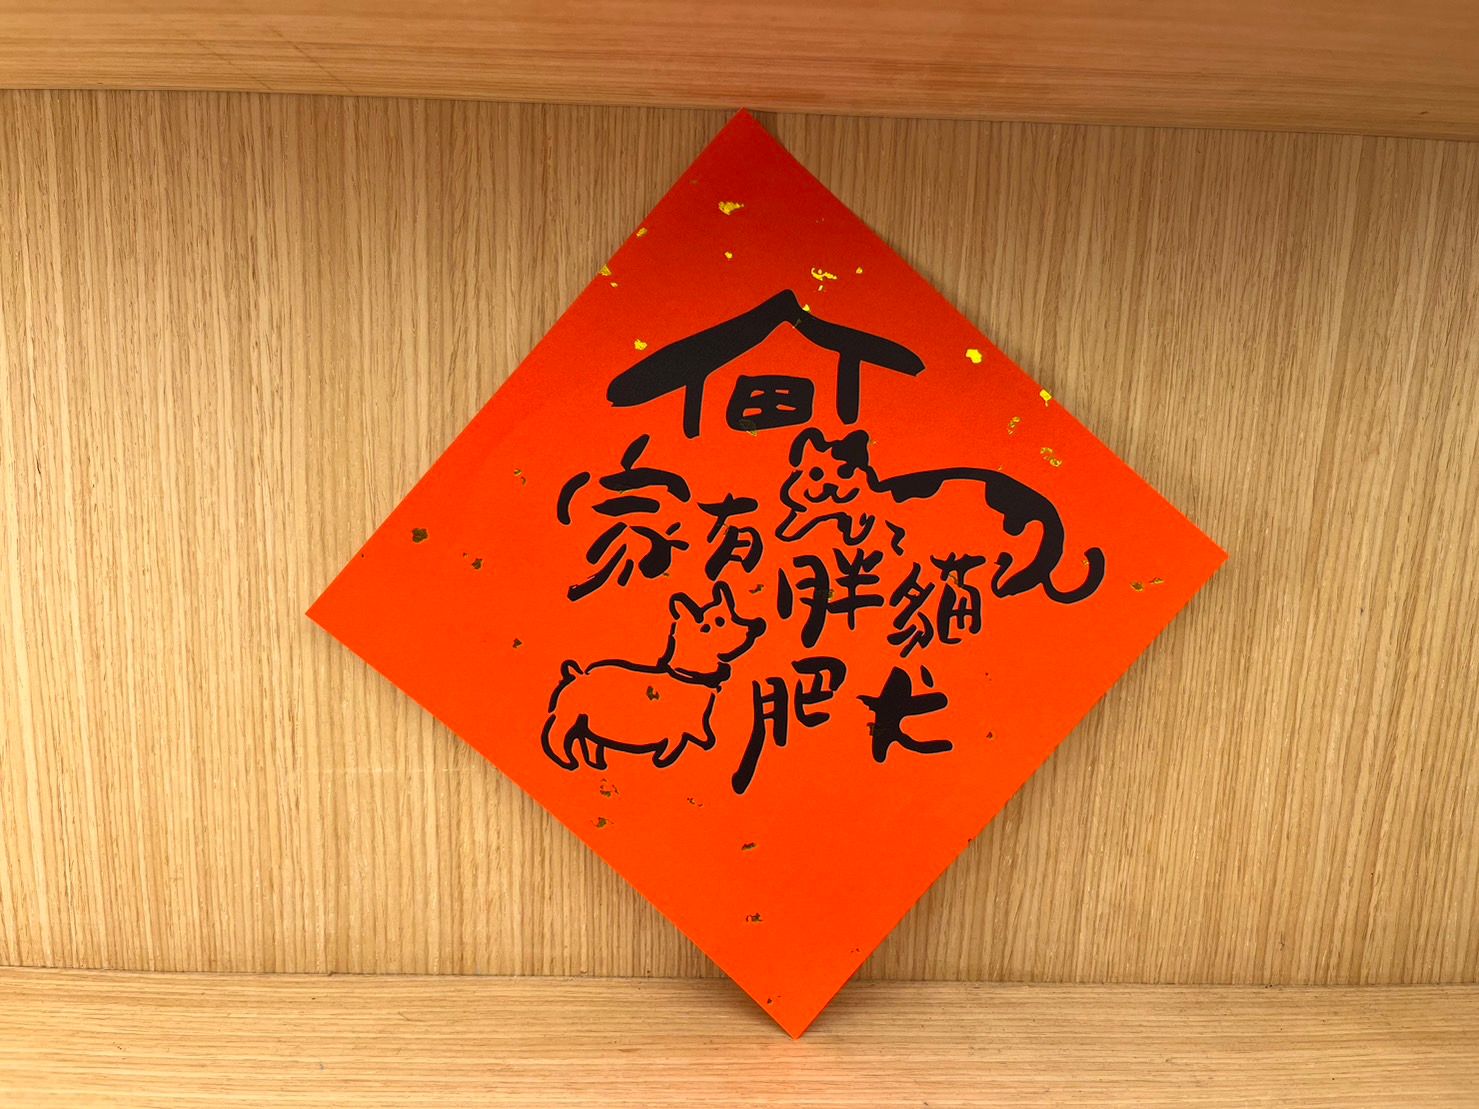 家有胖貓
肥犬